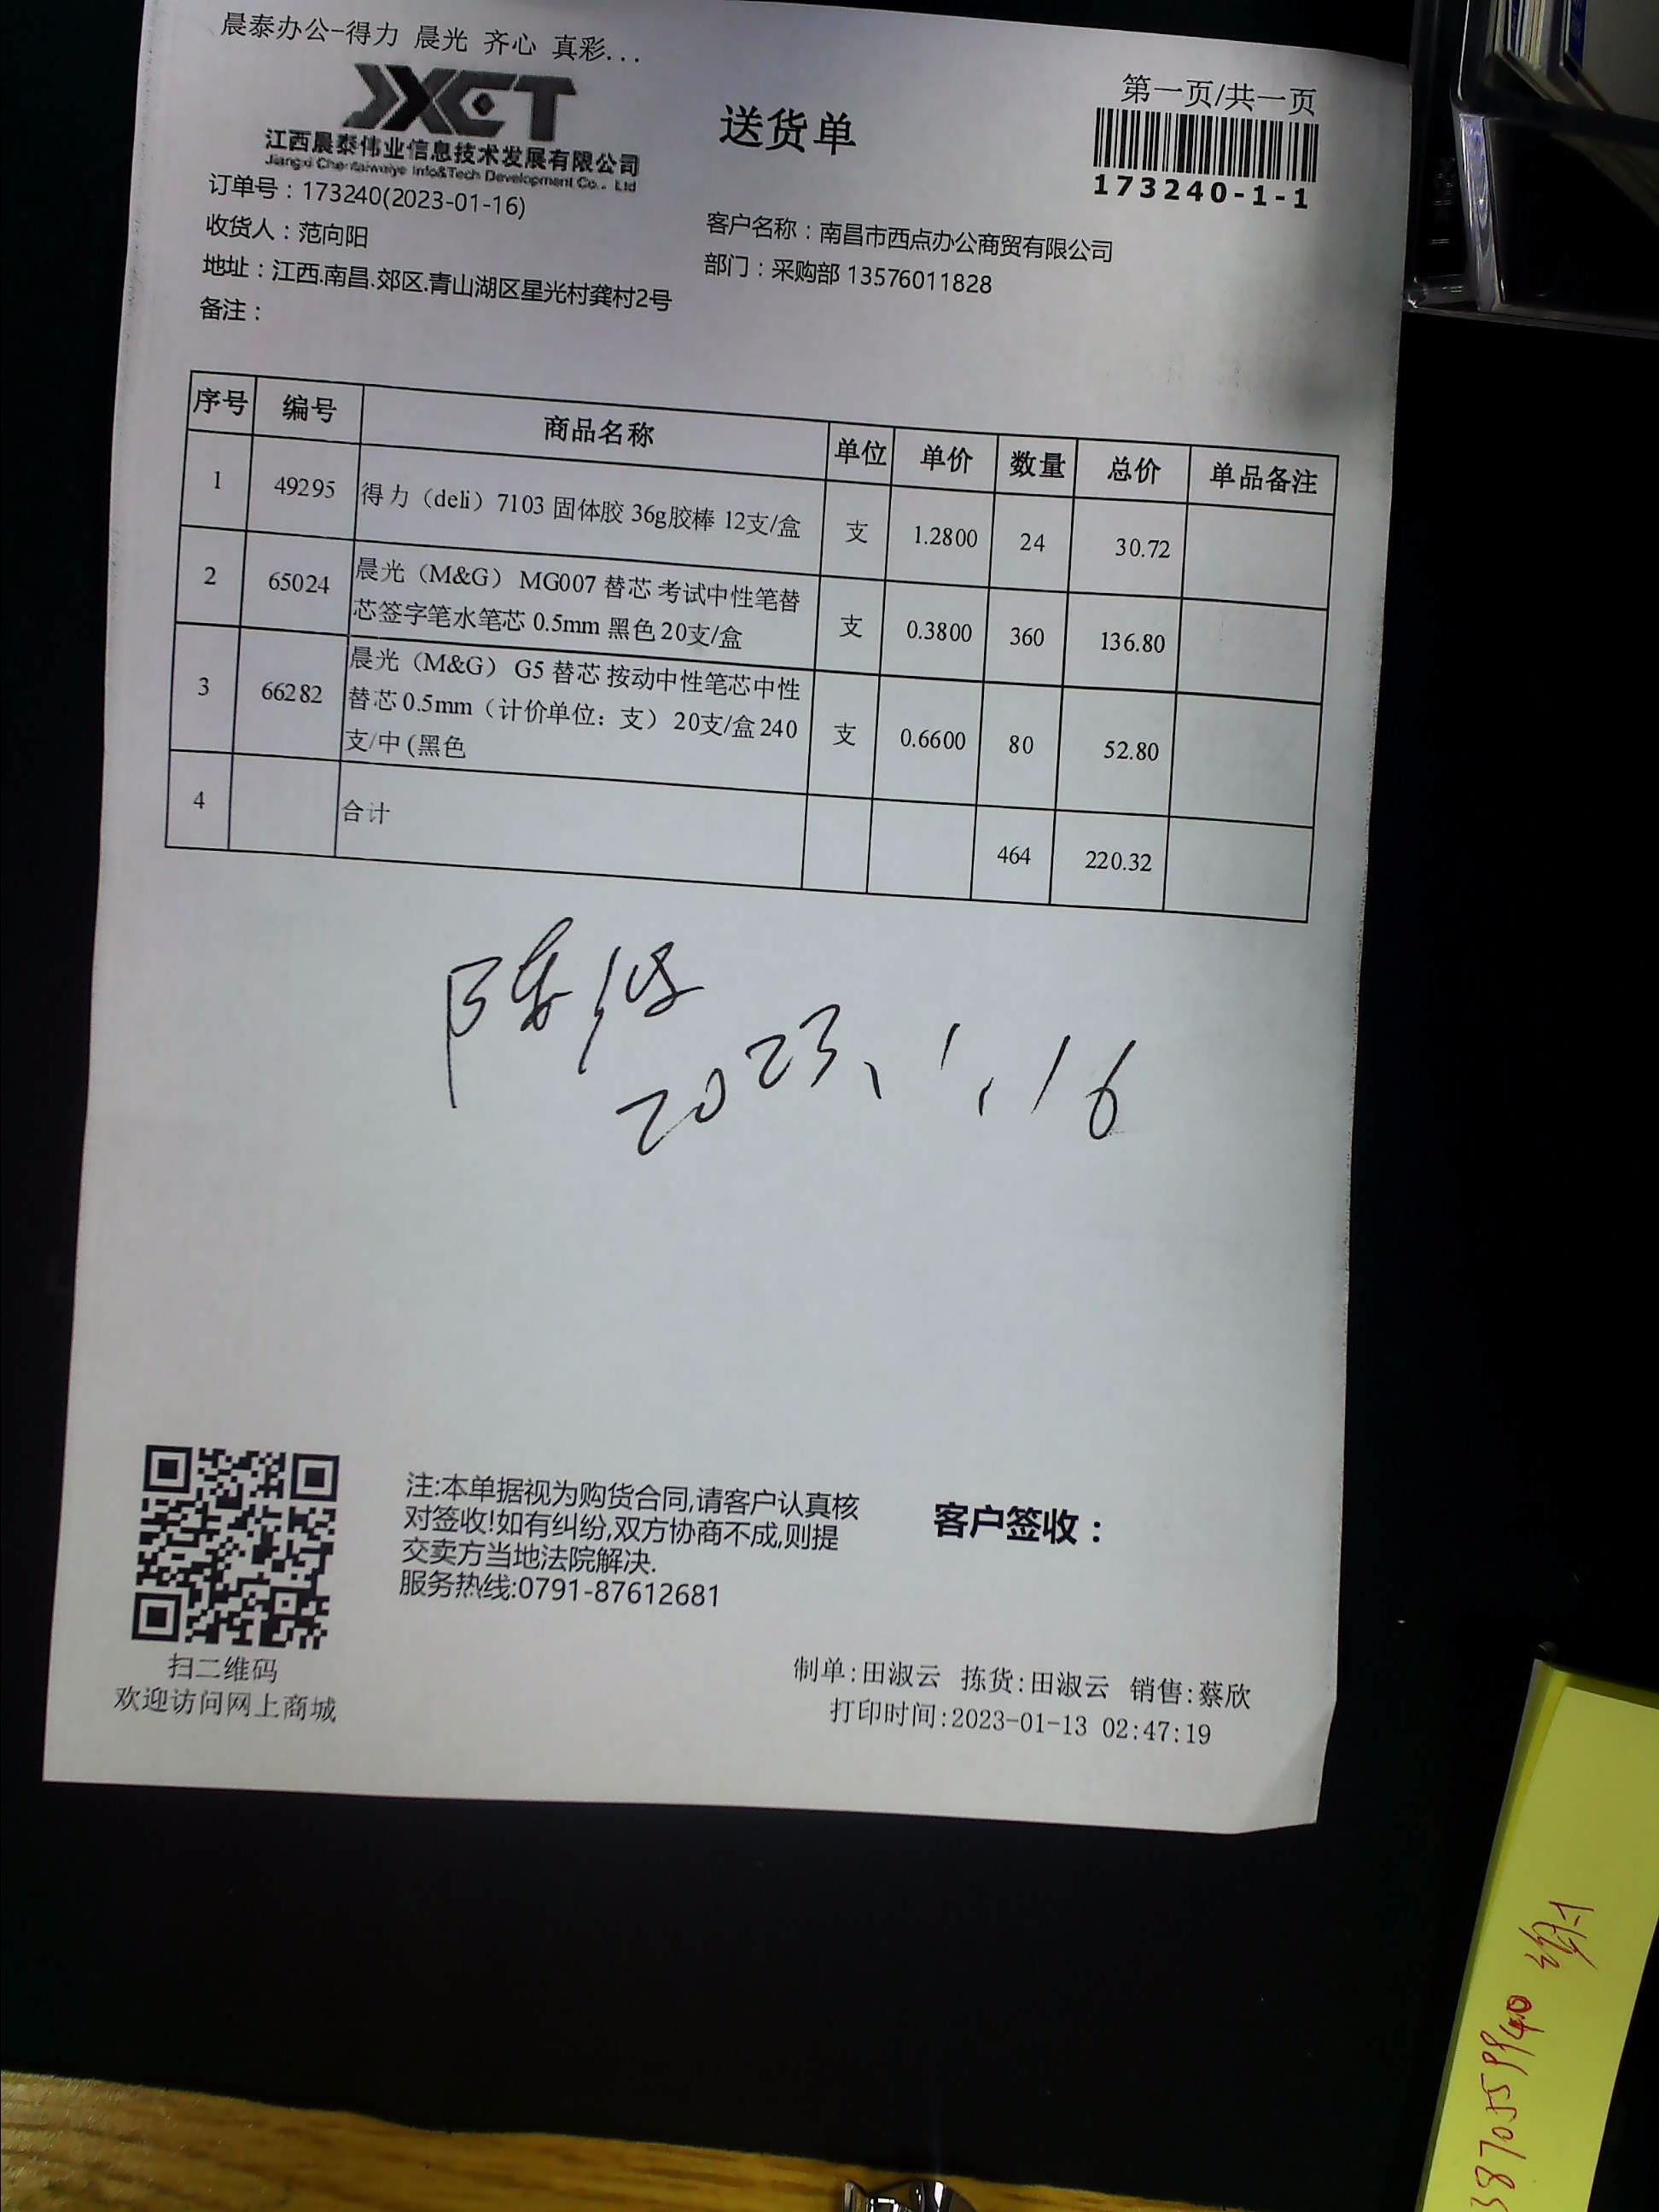 晨泰办公-得力 晨光 齐心 真彩...
JXCT
江西晨泰伟业信息技术发展有限公司
Jiangxi Chentaiweiye Info&Tech Development Co., Ltd
送货单
第一页/共一页
173240-1-1
订单号：173240(2023-01-16)
收货人：范向阳
客户名称：南昌市西点办公商贸有限公司
地址：江西.南昌.郊区.青山湖区星光村龚村2号
部门：采购部 13576011828
备注：
序号 编号 商品名称 单位 单价 数量 总价 单品备注
1 49295 得力（deli）7103 固体胶 36g胶棒 12支/盒 支 1.2800 24 30.72
2 65024 晨光（M&G） MG007 替芯 考试中性笔替
芯签字笔水笔芯 0.5mm 黑色 20支/盒 支 0.3800 360 136.80
3 66282 晨光（M&G） G5 替芯 按动中性笔芯中性
替芯 0.5mm（计价单位：支） 20支/盒 240
支/中 (黑色 支 0.6600 80 52.80
4 合计 464 220.32
陈
2023、1、16
注:本单据视为购货合同,请客户认真核
对签收!如有纠纷,双方协商不成,则提
交卖方当地法院解决.
服务热线:0791-87612681
客户签收：
扫二维码
欢迎访问网上商城
制单:田淑云 拣货:田淑云 销售:蔡欣
打印时间:2023-01-13 02:47:19